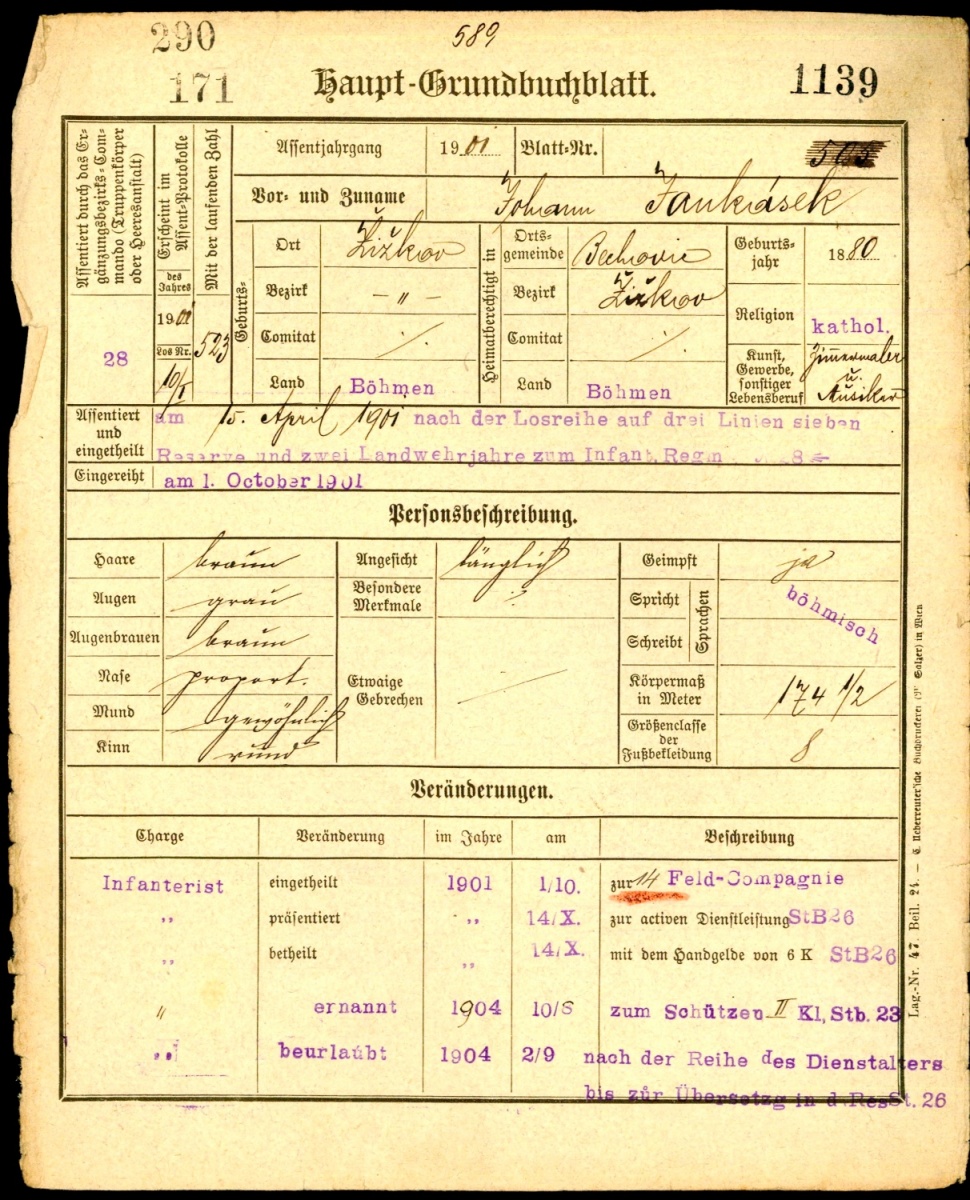 290
589
171
Haupt-Grundbuchblatt.
1139
Assentiert durch das Ergänzungsbezirks-Commando (Truppenkörper oder Heeresanstalt)
28
Erscheint im Assent-Protokolle
des Jahres
1901
Los Nr.
10/I
Mit der laufenden Zahl
523
Assentjahrgang 1901 Blatt-Nr.
Vor- und Zuname Johann Jankrásek
Geburts-
Ort Žižkov
Bezirk - " -
Comitat ./.
Land Böhmen
Heimatberechtigt in
Ortsgemeinde Bechovic
Bezirk Žižkov
Comitat ./.
Land Böhmen
Geburtsjahr 1880
Religion kathol.
Kunst, Gewerbe, sonstiger Lebensberuf Zimmermaler u. Musiker
Assentiert und eingetheilt
am 15. April 1901 nach der Losreihe auf drei Linien sieben
Reserve und zwei Landwehrjahre zum Infant. Regm 28
Eingereiht am 1. October 1901
Personsbeschreibung.
Haare braun
Augen grau
Augenbrauen braun
Nase proport.
Mund gewöhnlich
Kinn rund
Angesicht länglich
Besondere Merkmale
Etwaige Gebrechen
Geimpft ja
Spricht
Schreibt
Sprachen
böhmisch
Körpermaß in Meter 174 1/2
Größenclasse der Fußbekleidung 8
Veränderungen.
Charge Veränderung im Jahre am Beschreibung
Infanterist eingetheilt 1901 1/10. zur 14 Feld-Compagnie
" präsentiert " 14/X. zur activen Dienstleistung StB26
" betheilt " 14/X. mit dem Handgelde von 6 K StB26
" ernannt 1904 10/8 zum Schützen II Kl, Stb. 23
" beurlaubt 1904 2/9 nach der Reihe des Dienstalters
bis zůr Übersetzg in d. Res St. 26
Lag.-Nr. 47. Beil. 24. — C. Ueberreuter'sche Buchdruckerei (M. Salzer) in Wien